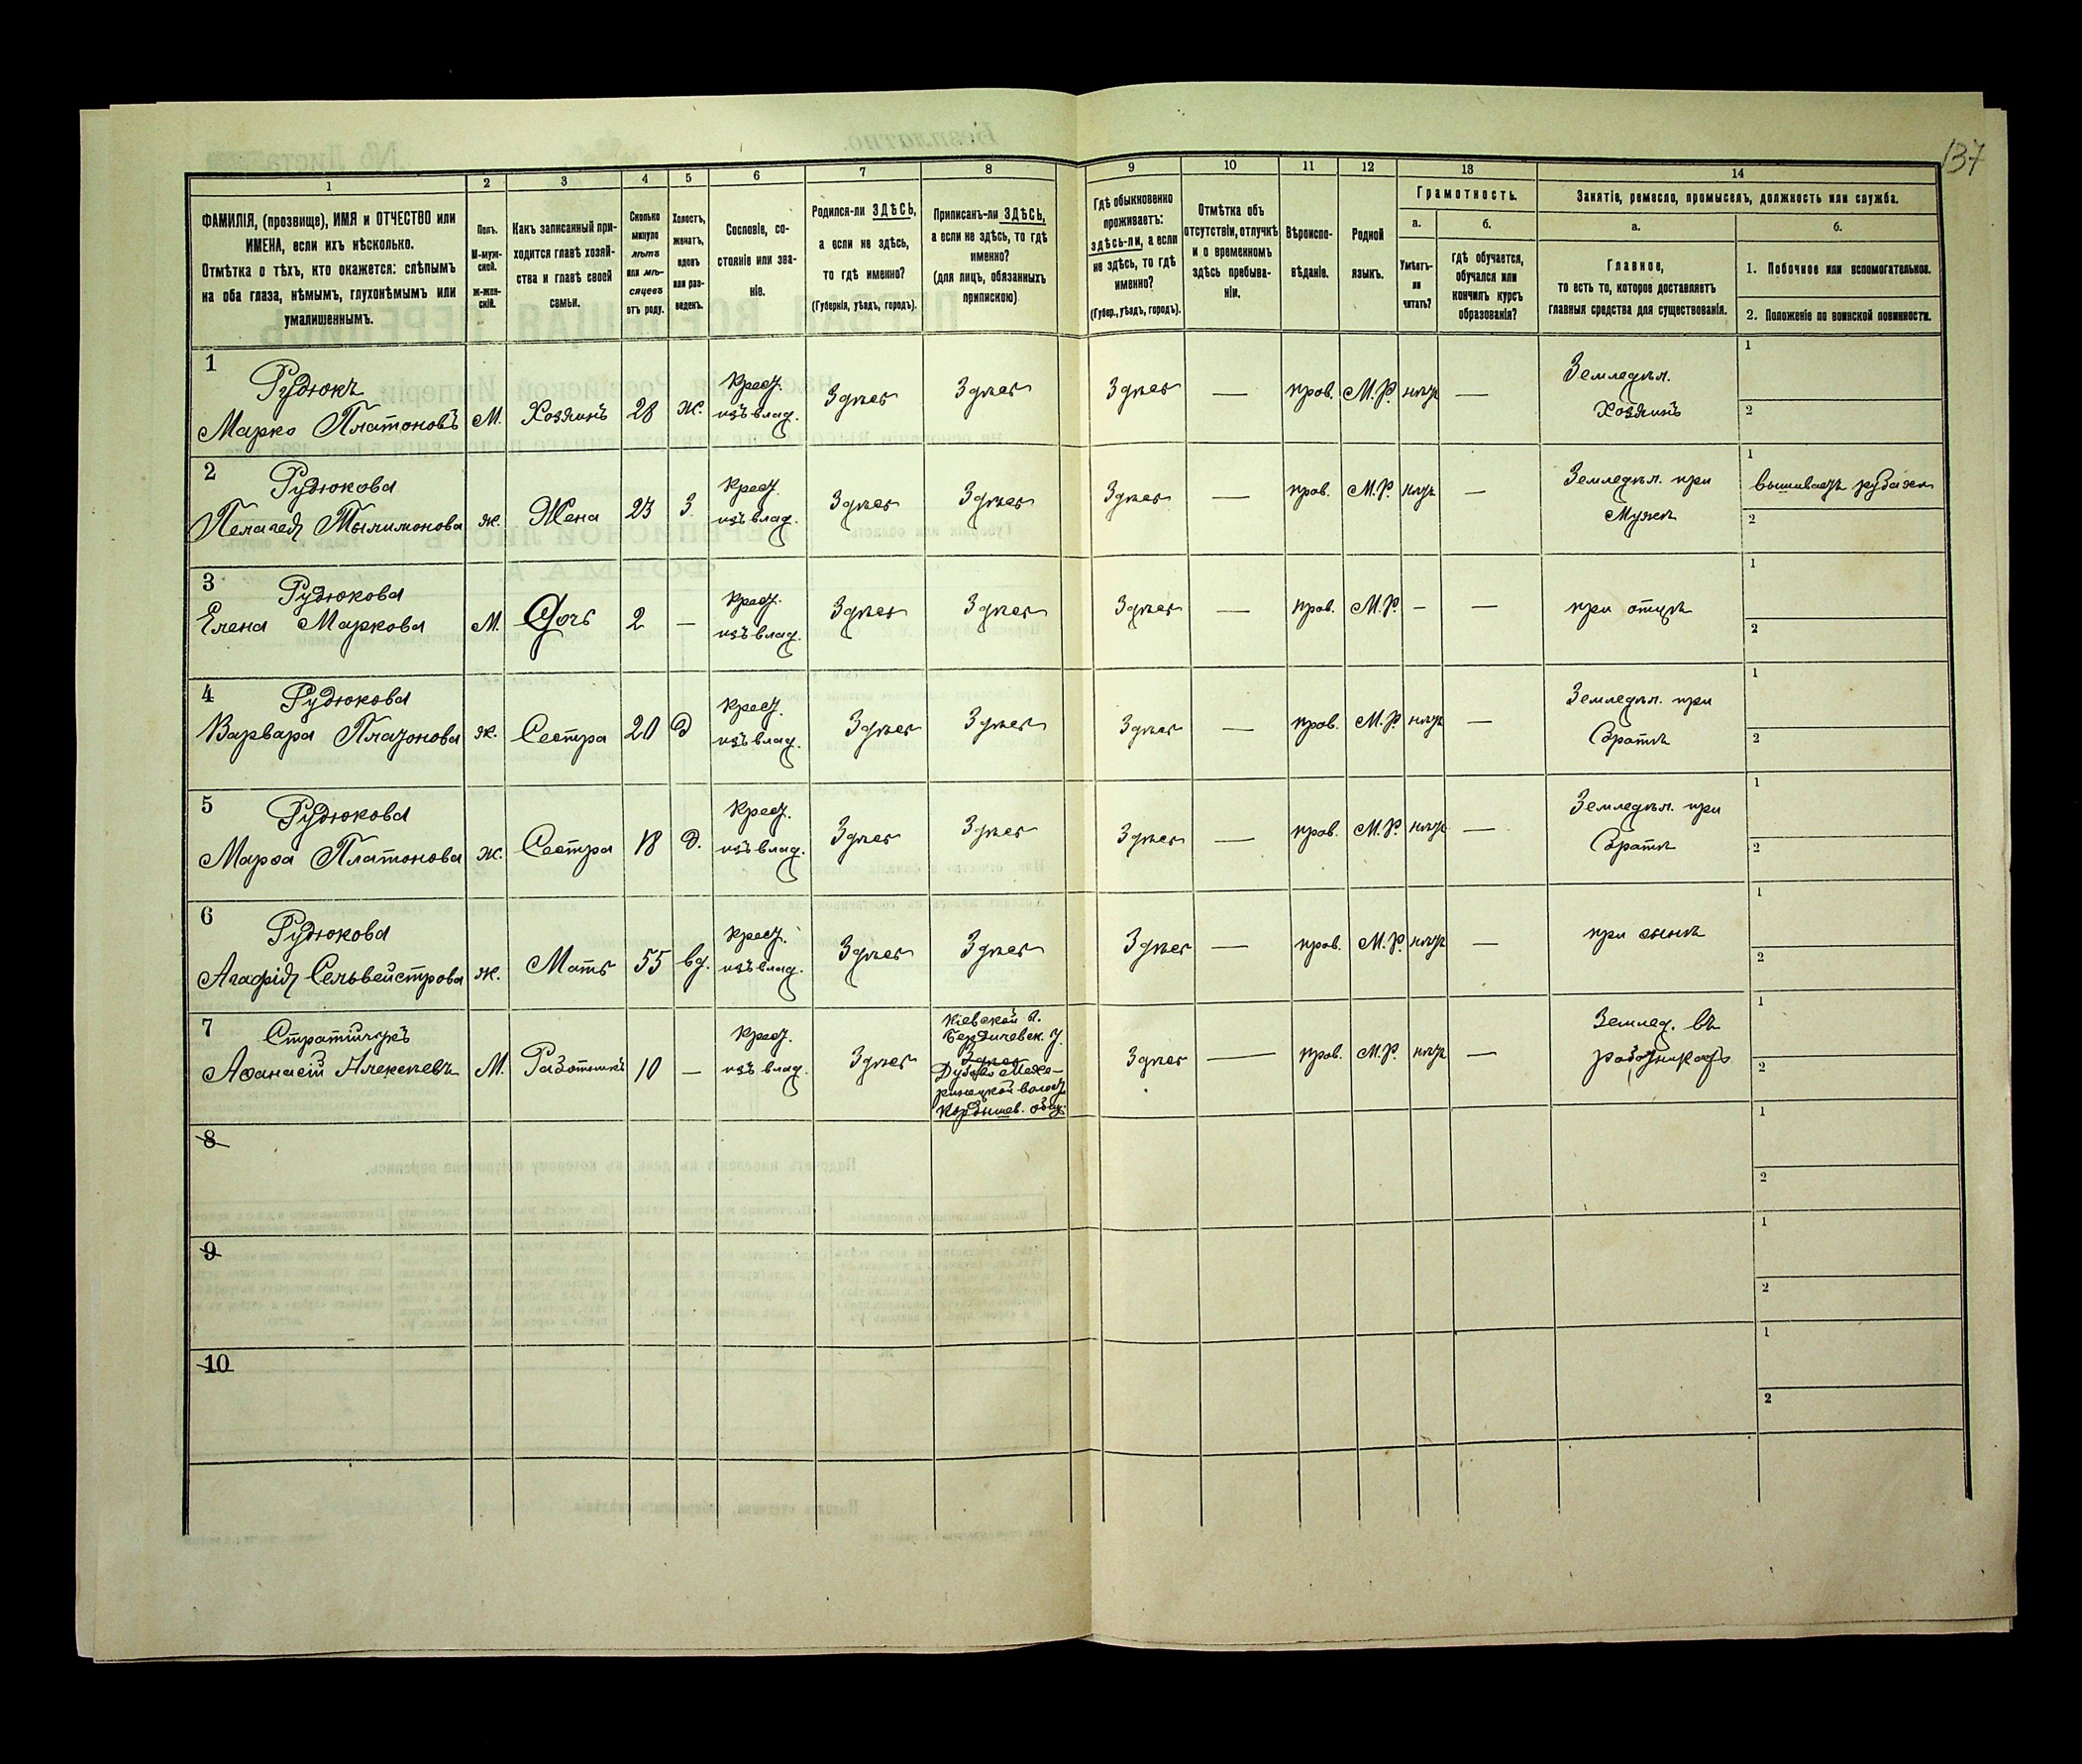 137
1 2 3 4 5 6 7 8 9 10 11 12 13 14
ФАМИЛІЯ, (прозвище), ИМЯ и ОТЧЕСТВО или
ИМЕНА, если ихъ нѣсколько.
Отмѣтка о тѣхъ, кто окажется: слѣпымъ
на оба глаза, нѣмымъ, глухонѣмымъ или
умалишеннымъ.
Полъ.
М-муж-
ской.
Ж-жен-
скій.
Какъ записанный при-
ходится главѣ хозяй-
ства и главѣ своей
семьи.
Сколько
минуло
лѣтъ
или мѣ-
сяцевъ
отъ роду.
Холостъ,
женатъ,
вдовъ
или раз-
веденъ.
Сословіе, со-
стояніе или зва-
ніе.
Родился-ли ЗДѢСЬ,
а если не здѣсь,
то гдѣ именно?
(Губернія, уѣздъ, городъ).
Приписанъ-ли ЗДѢСЬ,
а если не здѣсь, то гдѣ
именно?
(для лицъ, обязанныхъ
припискою)
Гдѣ обыкновенно
проживаетъ:
здѣсь-ли, а если
не здѣсь, то гдѣ
именно?
(Губер., уѣздъ, городъ).
Отмѣтка объ
отсутствіи, отлучкѣ
и о временномъ
здѣсь пребыва-
ніи.
Вѣроиспо-
вѣданіе.
Родной
языкъ.
Грамотность.
а.
Умѣетъ-
ли
читать?
б.
гдѣ обучается,
обучался или
кончилъ курсъ
образованія?
Занятіе, ремесло, промыселъ, должность или служба.
а.
Главное,
то есть то, которое доставляетъ
главныя средства для существованія.
б.
1. Побочное или вспомогательное.
2. Положеніе по воинской повинности.
1
Рудюкъ
Марко Платоновъ М. Хозяинъ 28 ж. Крест. изъ влад. Здѣсь Здѣсь Здѣсь — прав. М.Р. нѣтъ — Земледѣл. Хозяинъ
1
2
2
Рудюкова
Пелагея Тылимонова ж. Жена 23 З. Крест. изъ влад. Здѣсь Здѣсь Здѣсь — прав. М.Р. нѣтъ — Земледѣл. при Мужѣ
1 вышиваетъ рубахи
2
3
Рудюкова
Елена Маркова М. Дочь 2 — Крест. изъ влад. Здѣсь Здѣсь Здѣсь — прав. М.Р. — — при отцѣ
1
2
4
Рудюкова
Варвара Платонова ж. Сестра 20 Д Крест. изъ влад. Здѣсь Здѣсь Здѣсь — прав. М.Р. нѣтъ — Земледѣл. при Братѣ
1
2
5
Рудюкова
Марѳа Платонова ж. Сестра 18 Д. Крест. изъ влад. Здѣсь Здѣсь Здѣсь — прав. М.Р. нѣтъ — Земледѣл. при Братѣ
1
2
6
Рудюкова
Агафія Сельвейстрова ж. Мать 55 вд. Крест. изъ влад. Здѣсь Здѣсь Здѣсь — прав. М.Р. нѣтъ — при сынѣ
1
2
7
Аѳанасій Алексѣевъ М. Работникъ 10 — Крест. изъ влад. Здѣсь
Кіевской г.
Бердичевск. у.
Здѣсь
волост
общ.
Здѣсь — прав. М.Р. нѣтъ — Землед. въ
1
2
8
1
2
9
1
2
10
1
2